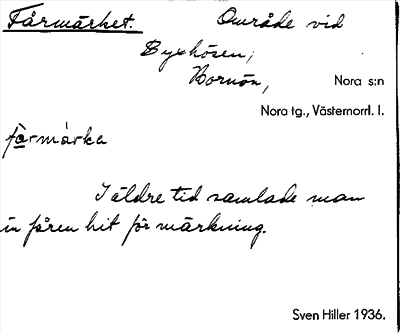 Fårmärket. Område vid
Byxhösen,
Hornön, Nora s:n
Nora tg., Västernorrl. l.
fårmárka
I äldre tid samlade man
in fåren hit för märkning.
Sven Hiller 1936.